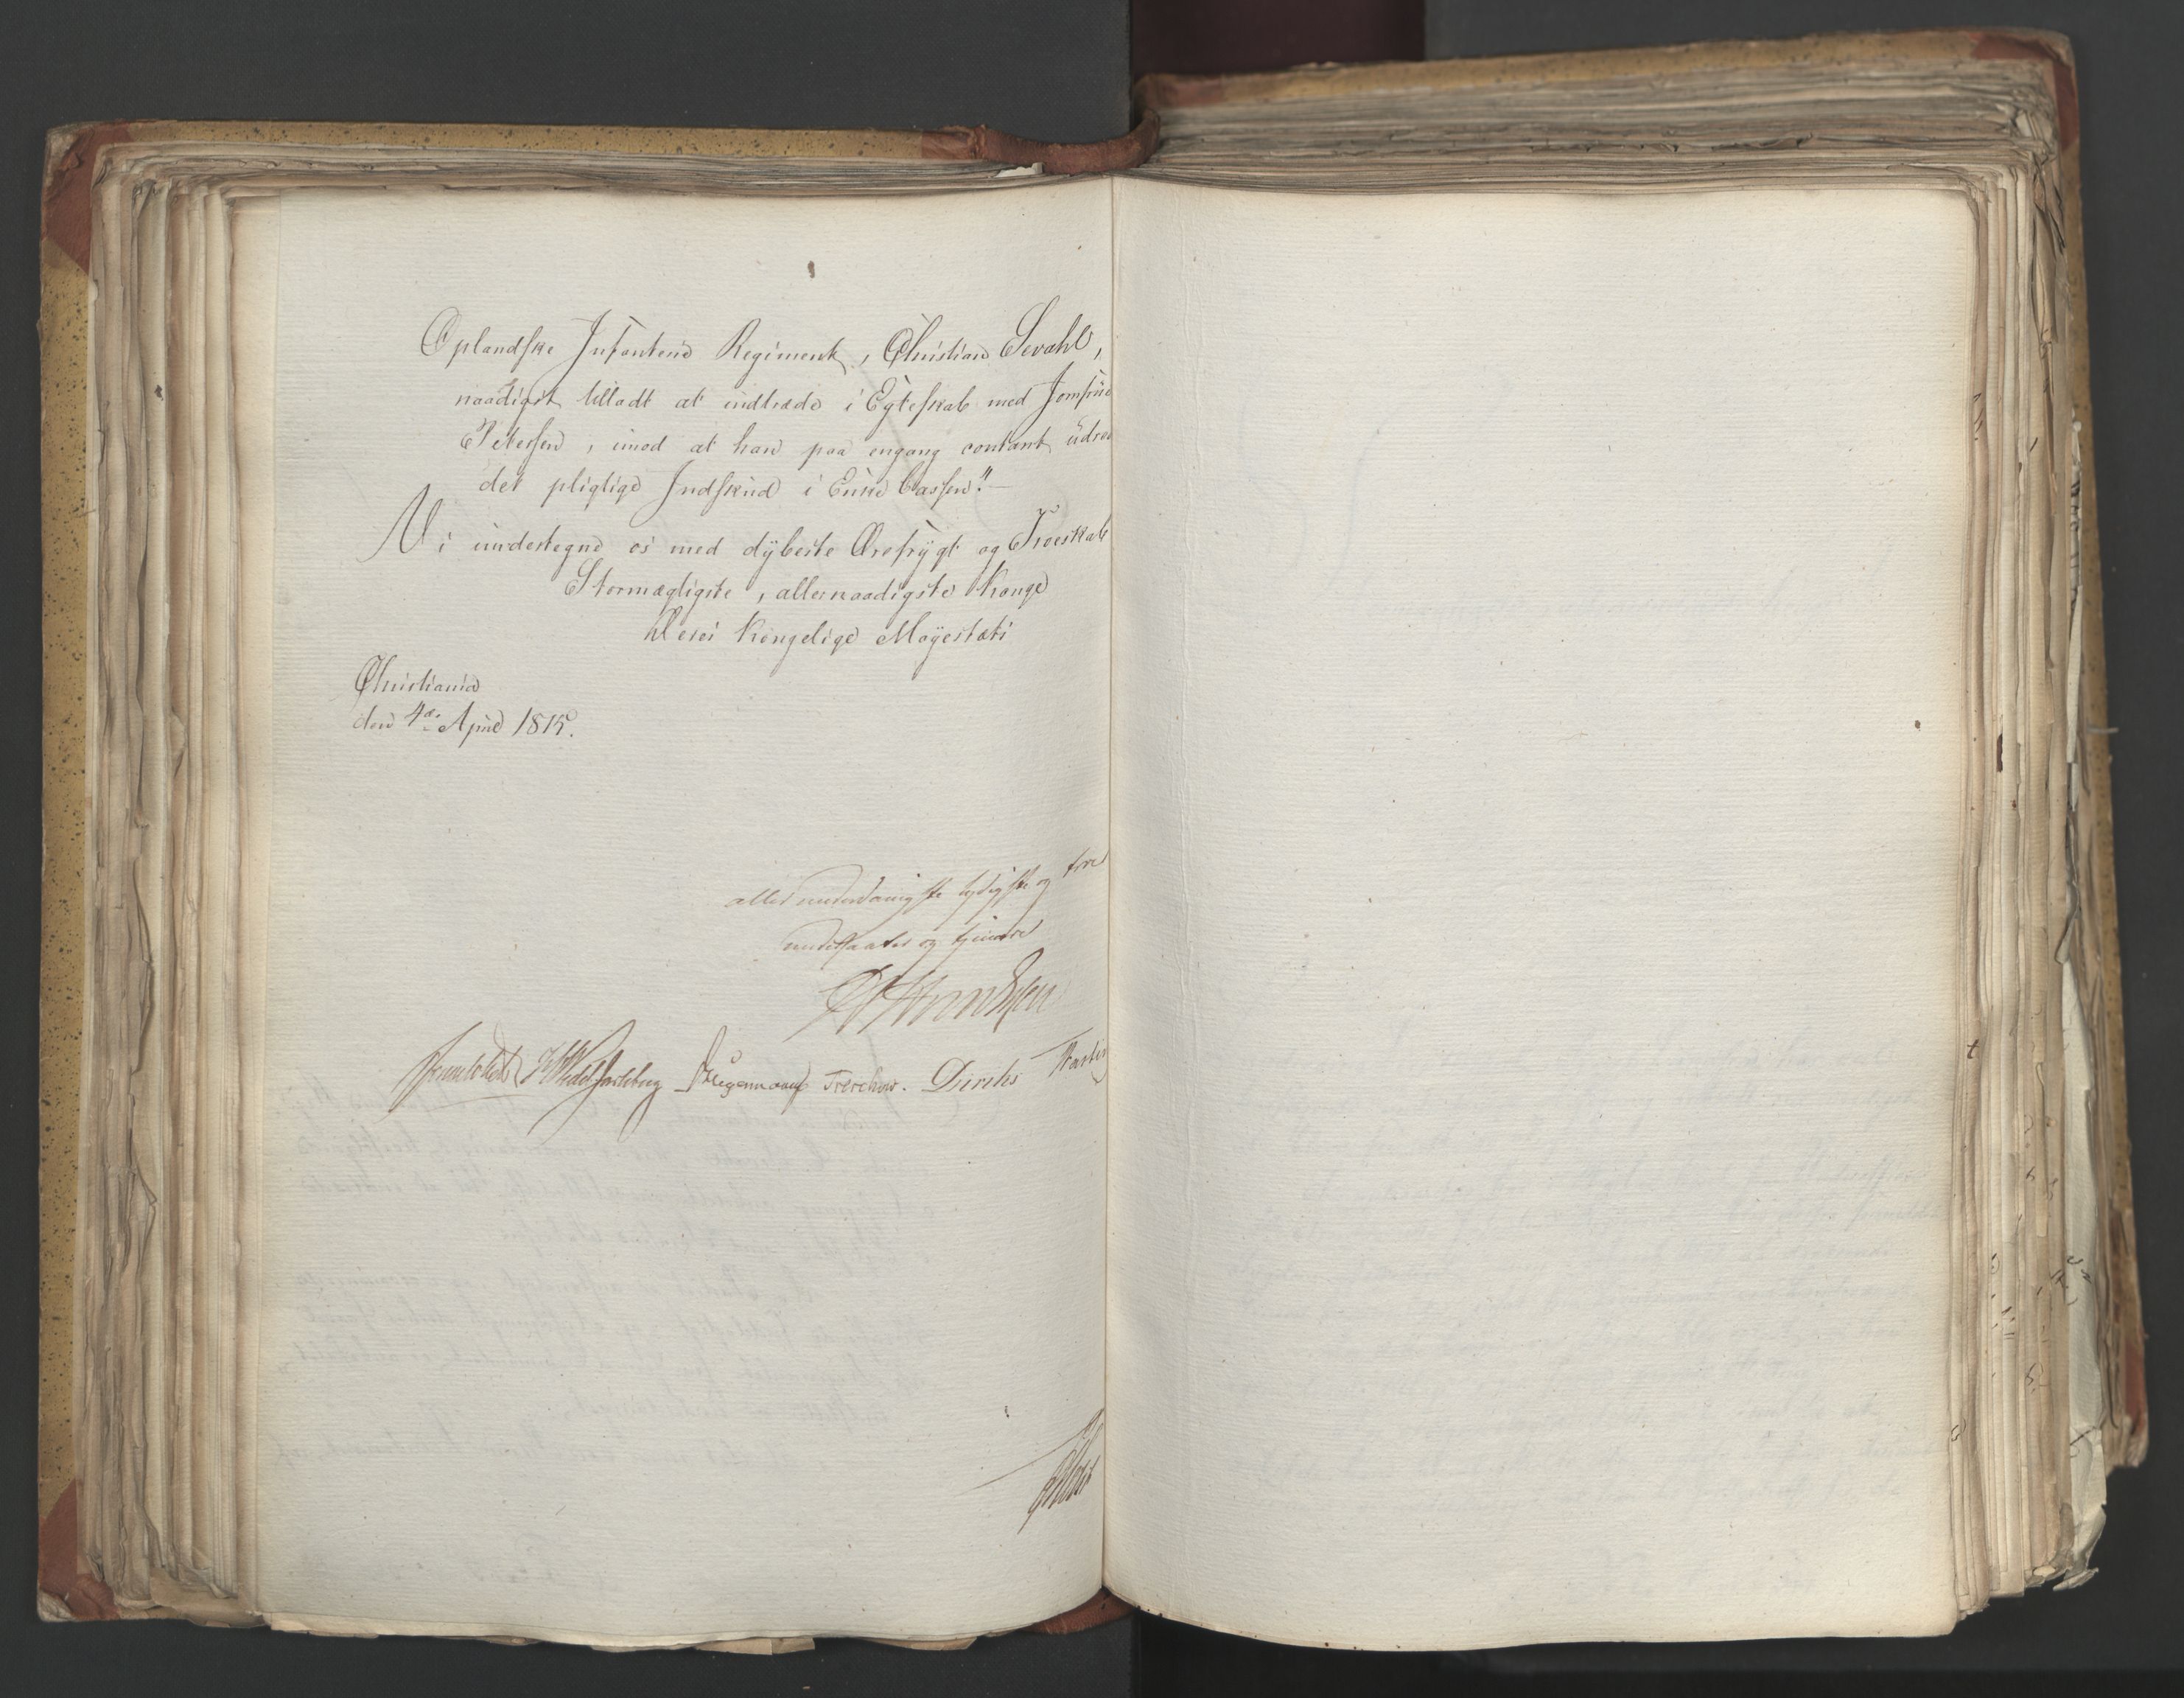 Oplandske Infanterie Regiment, Christian Sevahl,
naadigst tilladt at indtræde i Egteskab med Jomfrue
Petersen, imod at han paa engang contant üdred
det pligtige Indskud i Enke Cassen."—
Vi undertegne os med dÿbeste Ærefrÿgt og Troeskab
Stormægtigste, allernaadigste Konge
Deres Kongelige Mayestæts
Christiania
den 4de April 1815.
allerunderdanigste lydigste og troe
undersaatter og tjenere
Sommerhielm HWedel Jarlsberg DHegermann Treschow. Diriks Hasting
Holst